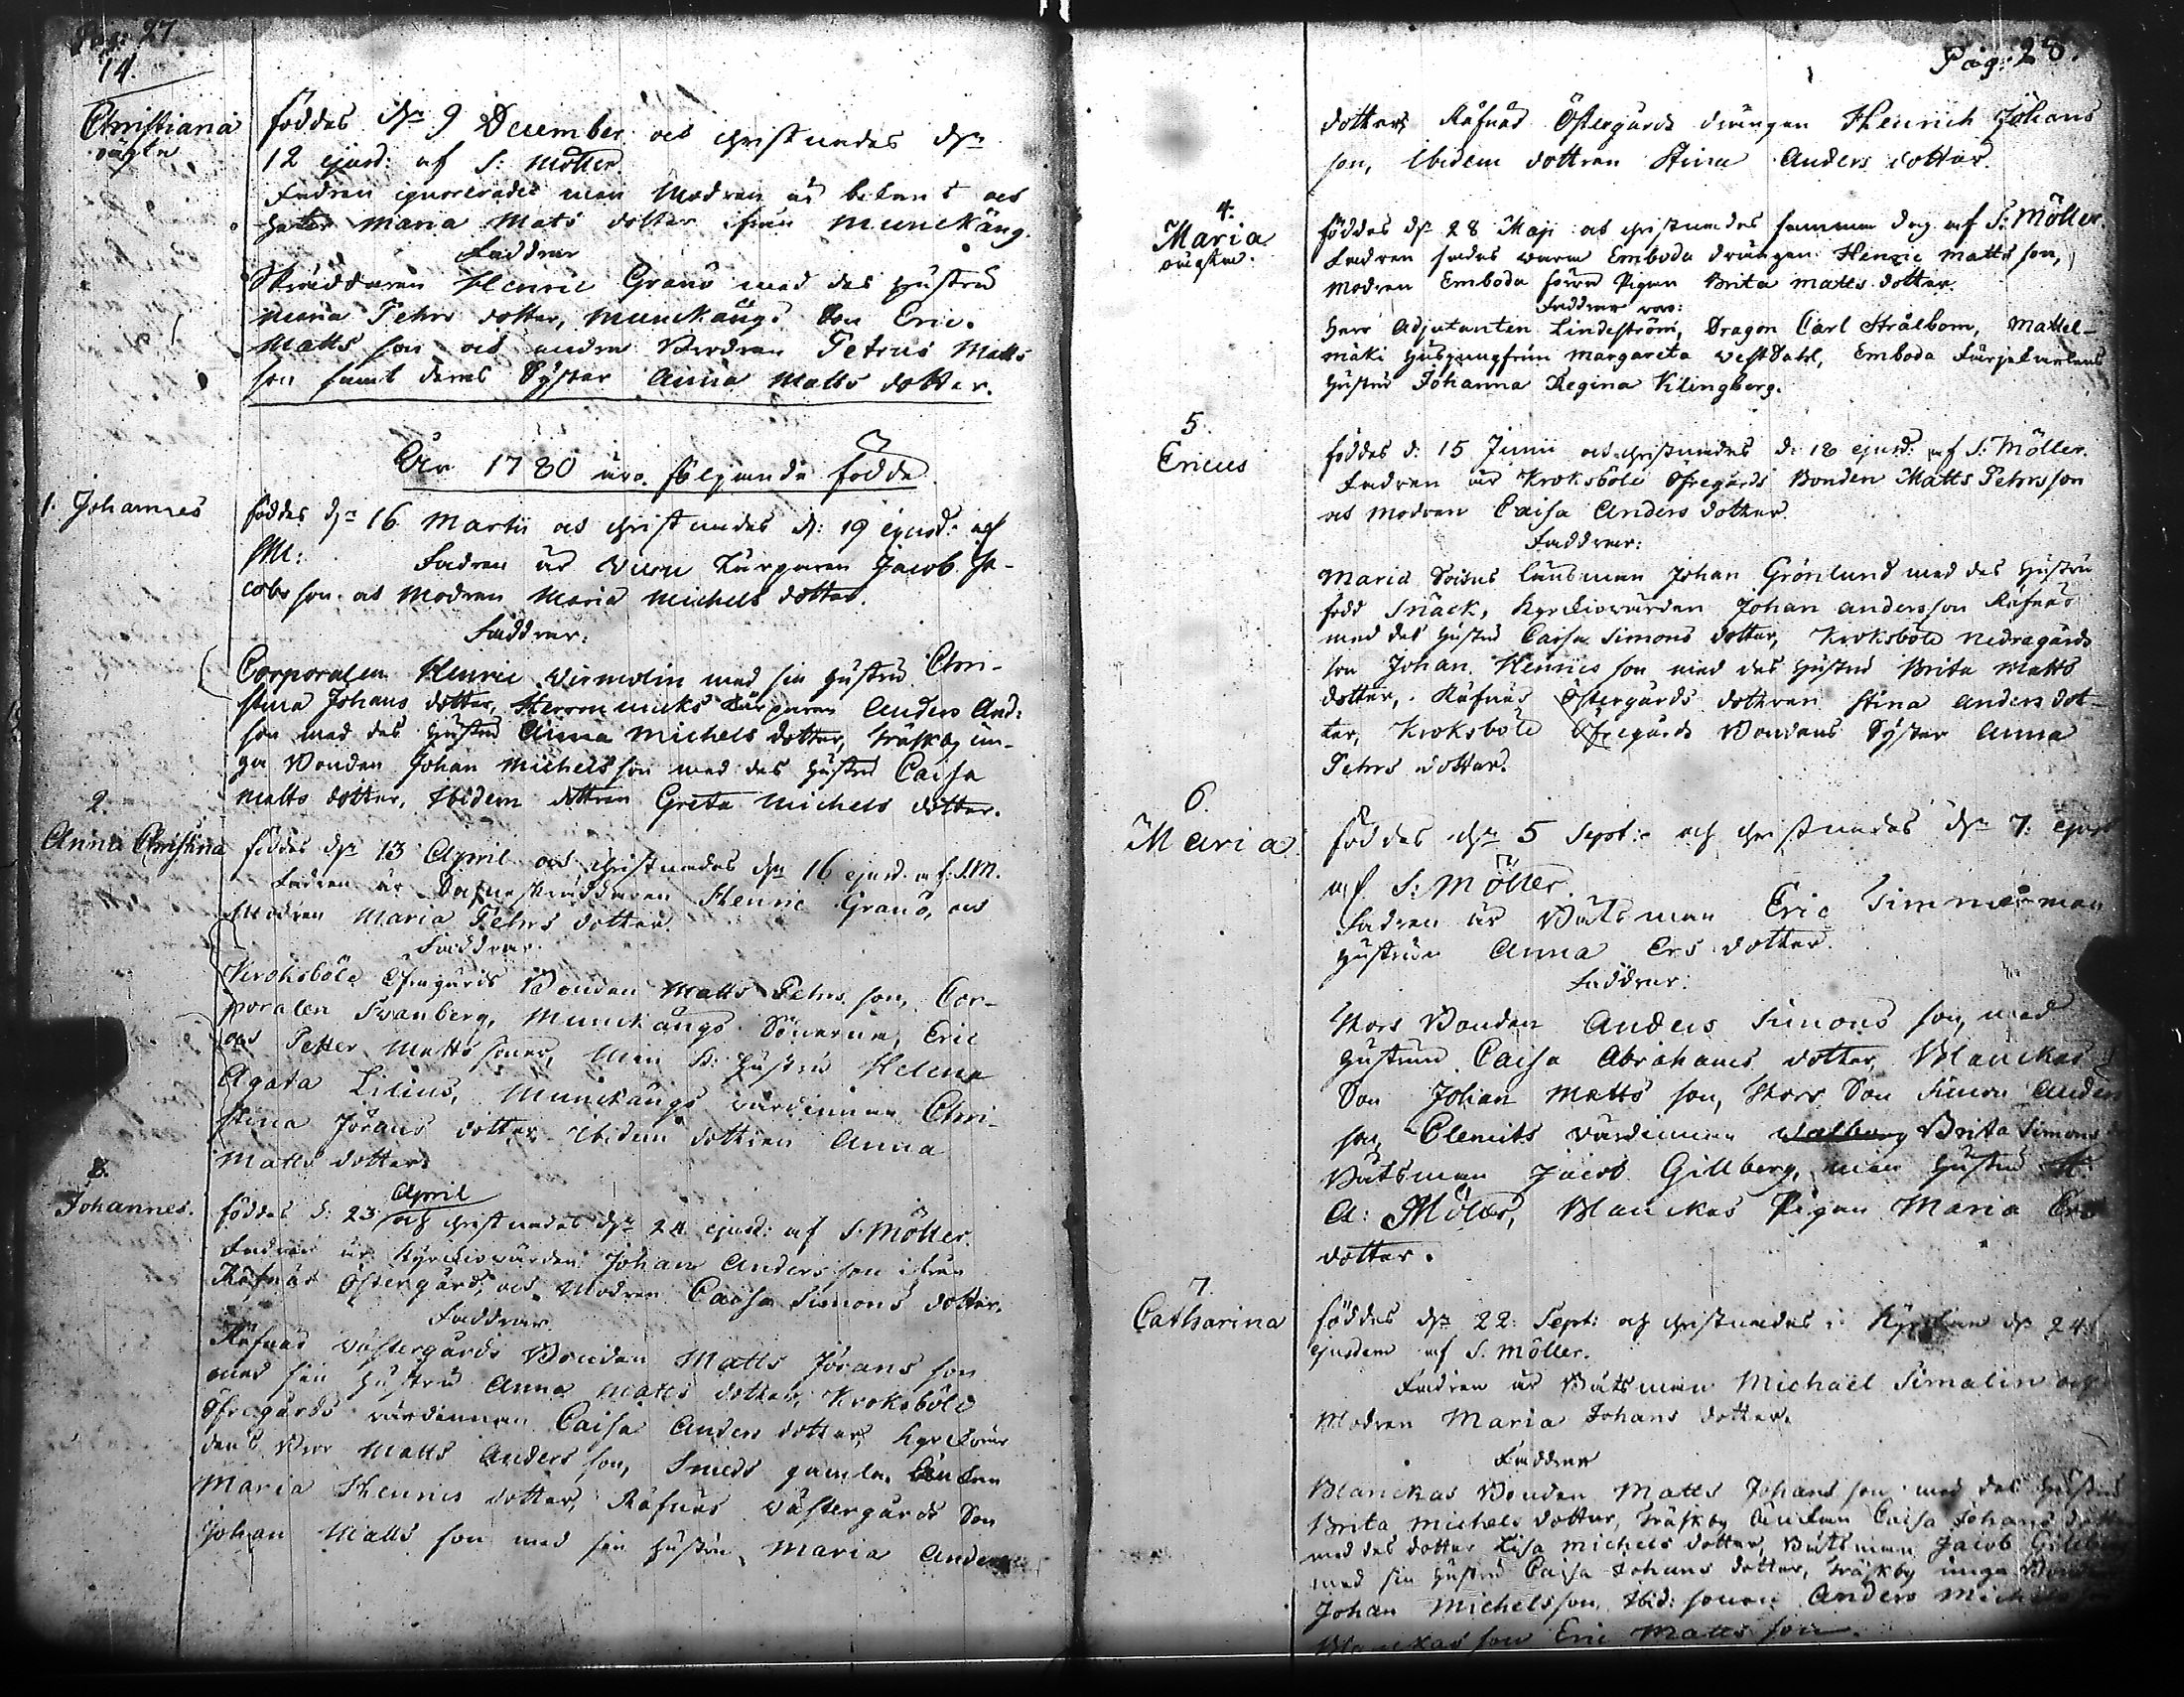 Pag: 27
14.
Christiana oägta
föddes d:n 9 December och christnades d:n
12 ejusd: af S: Möller
Fadren ignorerades men Modren är bekant och
heter Maria Mats dotter ifrån Munckäng.
Faddrar
Skräddaren Henric Granö med des hustru
Maria Pehrs dotter, Munckängs Son Eric
Matts son och andra Brodren Petrus Matts
son samt deras Syster Anna Matts dotter.
År 1780 äro följande födde
1. Johannes
föddes d:n 16 Martii och christnades d: 19 ejusd: af
SM: Fadren är Torparen Jacob Ja-
cobs son och Modren Maria Michels dotter.
Faddrar:
Corporalen Henric med sin hustru Chri-
stina Johans dotter, Torparen Anders And:
son med des hustru Anna Michels dotter, Träskby un-
ga Bonden Johan Michels son med des hustru Caisa
Matts dotter, Ibidem dottren Greta Michels dotter.
2.
Anna Christina
föddes d:n 13 April och christnades d:n 16 ejusd. af: S.M.
Fadren är Skräddaren Henric Granö, och
Modren Maria Pehrs dotter.
Faddrar
Kroksböle Öfregårds Bonden Matts Pehrs son, Cor-
poralen Svanberg, Munckängs Sönerne, Eric
och Petter Matts söner, Min K: hustru Helena
Agata Lilius, Munckängs värdinnan Chri-
stina Jörans dotter Ibidem dottren Anna
Matts dotter
3.
Johannes.
April
föddes d: 23 och christnades d:n 24 ejusd: af S: Möller.
Fadren är Kyrckiovärden Johan Anders son ifrån
Räfnäs Östergård, och Modren Caisa Simons dotter.
Faddrar
Räfnäs Västergårds Bonden Matts Jörans son
med sin hustru Anna Matts dotter, Kroksböle
Öfregårds värdinnan Caisa Anders dotter, Kyrckiovär
dens Bror Matts Anders son, Smeds gamla Änckan
Maria Henrics dotter, Räfnäs Västergårds Son
Johan Matts son med sin hustru Maria Anders
Pag: 28.
dotter, Räfnäs Östergårds drängen Henrich Johans
son, Ibidem dottren Stina Anders dotter.
4:
Maria oägta.
föddes d:n 28 Maji och christnades samma dag af S: Möller.
Fadren sades vara Emboda drängen Henric Matts son,
Modren Emboda förra Pigan Brita Matts dotter.
Faddrar voro:
Herr Adjutanten Lindeström, Dragon Carl Strålbom, Mattel-
mäki Husjungfrun Margareta Westdahl, Emboda Färjekarlens
hustru Johanna Regina Klingberg.
5.
Ericus
föddes d: 15 Junii och christnades d: 18 ejusd: af S: Möller.
Fadren är Kroksböle Öfregårds Bonden Matts Pehrs son
och Modren Caisa Anders dotter.
Faddrar:
Länsman Johan Grönlund med des hustru
född Snäck, Kyrckiovärden Johan Andersson Räfnäs
med des hustru Caisa Simons dotter, Kroksböle Nedregårds
Son Johan Henrics son med des hustru Brita Matts
dotter, Räfnäs Östergårds dottren Stina Anders dot-
ter, Kroksböle Öfregårds Bondens Syster Anna
Pehrs dotter.
6.
Maria
föddes d:n 5 Sept: och christnades d:n 7: ejusd
af S: Möller.
Fadren är Båtsman Eric Timmerman
hustrun Anna Ers dotter.
Faddrar:
Mors Bonden Anders Simons son, med
hustrun Caisa Abrahams dotter, Blanckas
Son Johan Matts son, Mors Son Simon Anders
son, Clemits värdinnan Brita Simons
Båtsman Jacob Gillberg, min hustru H:
A: Möller, Blanckas Pigan Maria Ers
dotter.
7.
Catharina
föddes d:n 22: Sept: och christnades i Kyrckan d:n 24
ejusdem af S. Möller.
Fadren är Båtsman Michaël Simalin och
Modren Maria Johans dotter.
Faddrar
Blanckas Bonden Matts Johans son med des hustru
Brita Michels dotter, Träskby Änckan Caisa Johans dotter
med des dotter Lisa Michels dotter, Båtsman Jacob Gillberg
med sin hustru Caisa Johans dotter, Träskby unga Bonden
Johan Michelsson, Ibid: sonen Anders Michelsson
Blanckas son Eric Matts son.